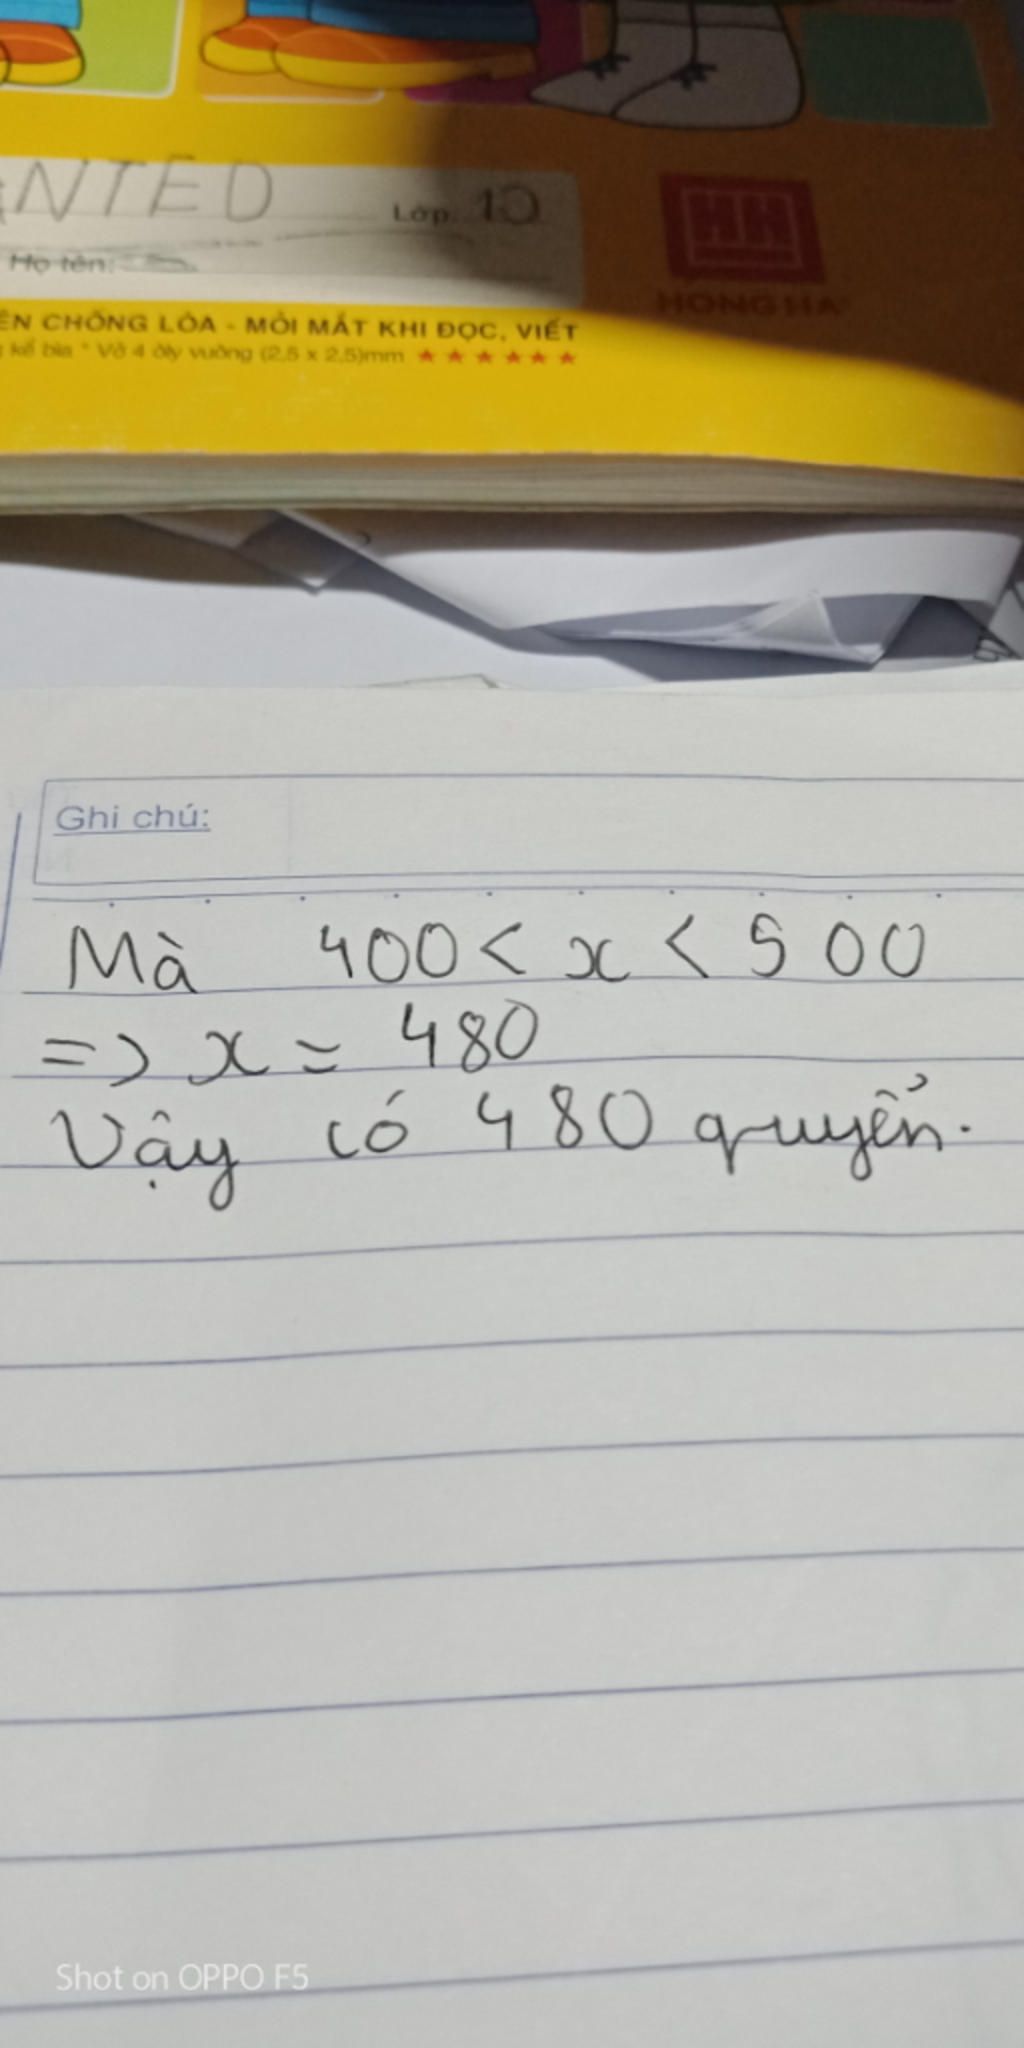 NTED
Lớp: 10
Họ tên:
HONG HA
ÊN CHỐNG LÓA - MỎI MẮT KHI ĐỌC, VIẾT
kể bìa * Vở 4 ôly vuông (2,5 x 2,5)mm ★★★★★★
Ghi chú:
Mà 400 < x < 500
=> x = 480
Vậy có 480 quyển.
Shot on OPPO F5